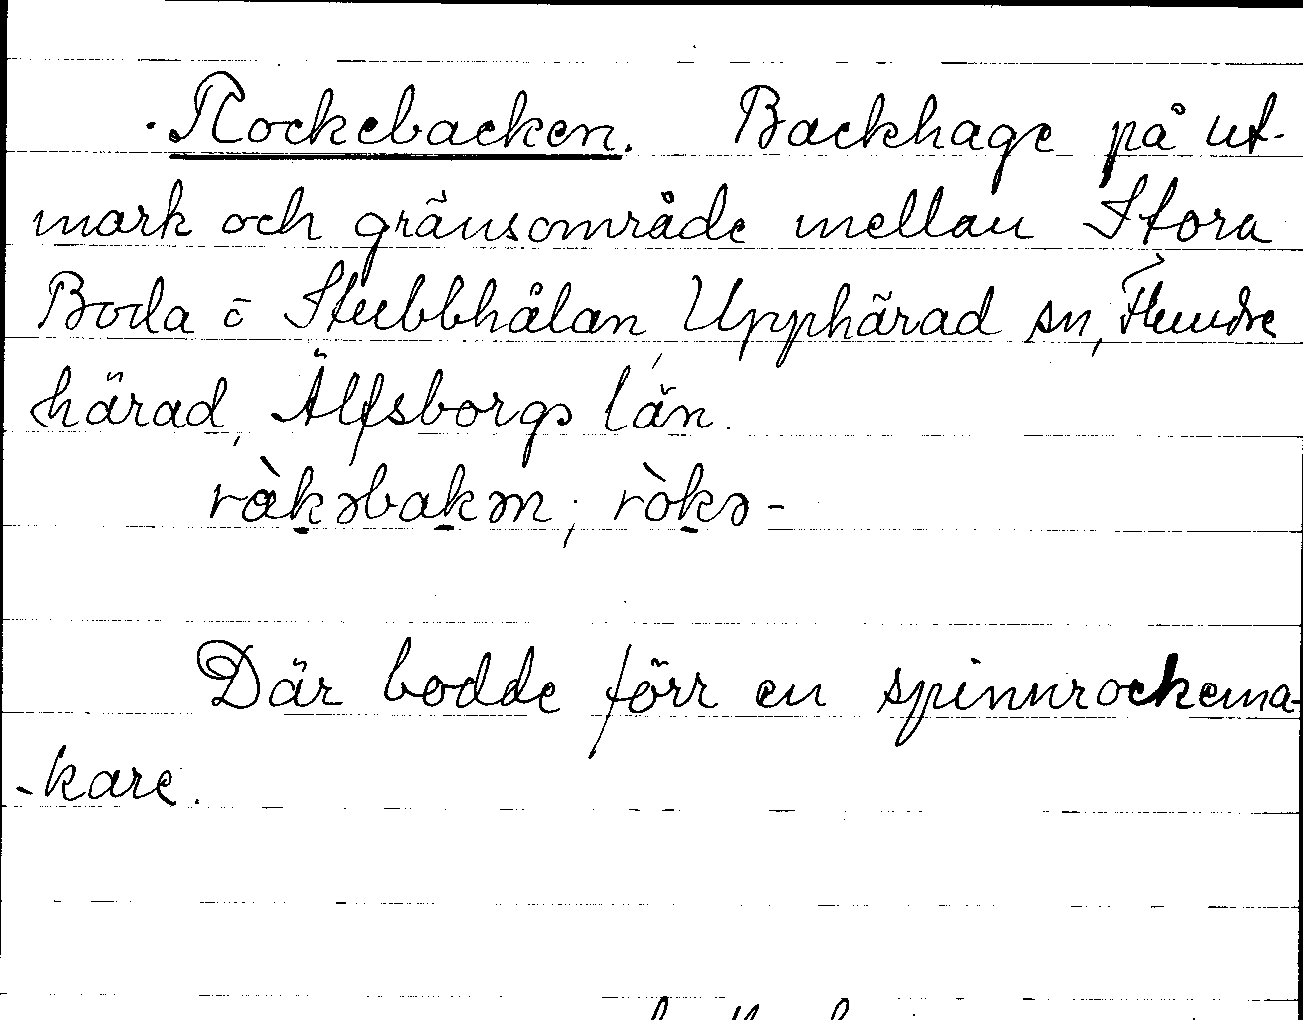 Rockebacken. Backhage på ut-
mark och gränsområde mellan Stora
Boda o Stubbhålan, Upphärad sn, Flundre
härad, Älfsborgs län.
ràkəbakən; ròkə-
Där bodde förr en spinnrockema-
-kare.